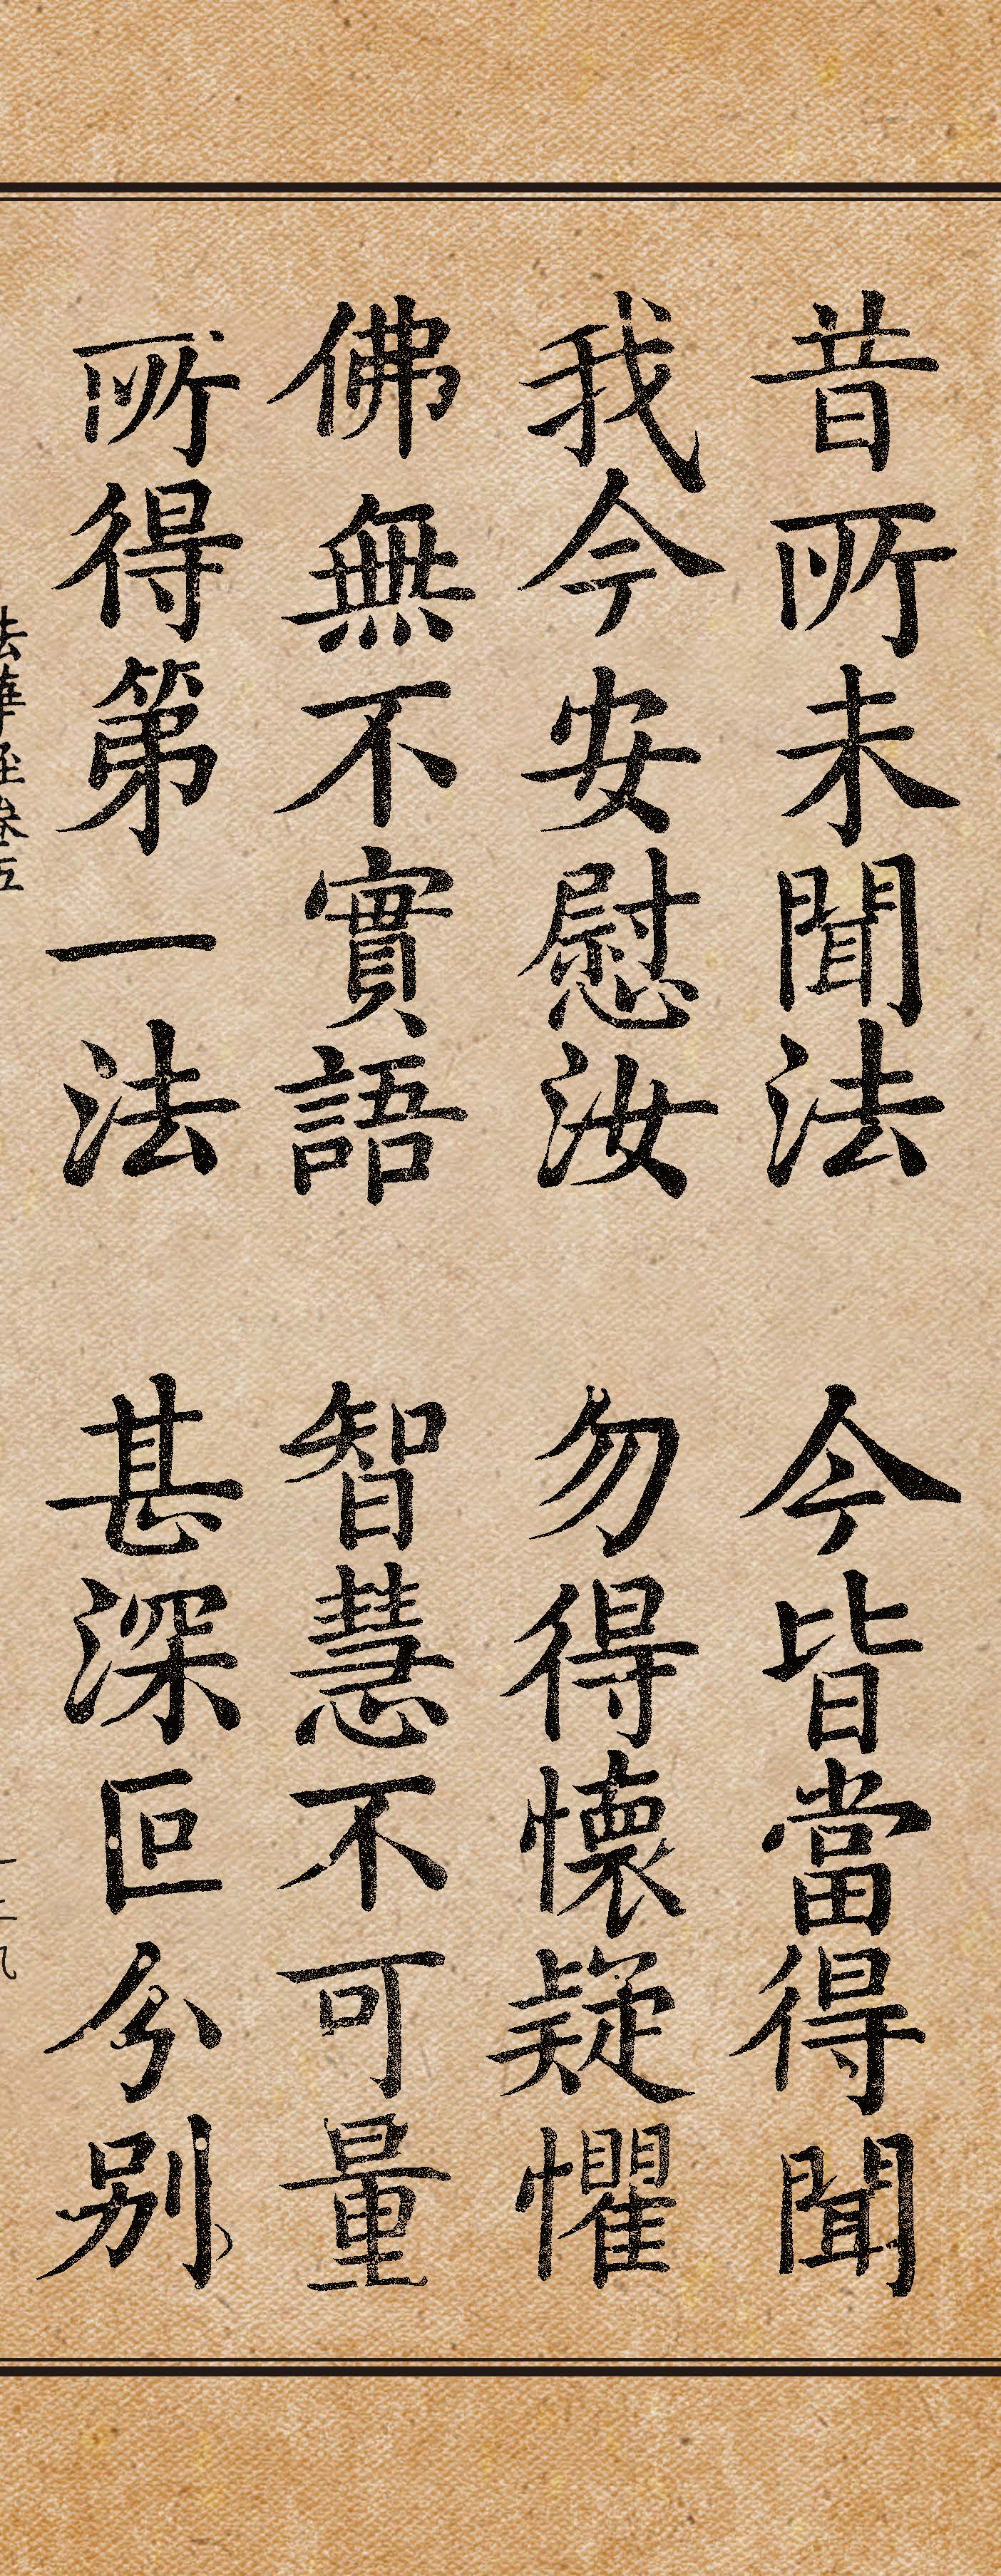 昔所未聞法　今皆當得聞
我今安慰汝　勿得懷疑懼
佛無不實語　智慧不可量
所得第一法　甚深叵分別
法華經卷五